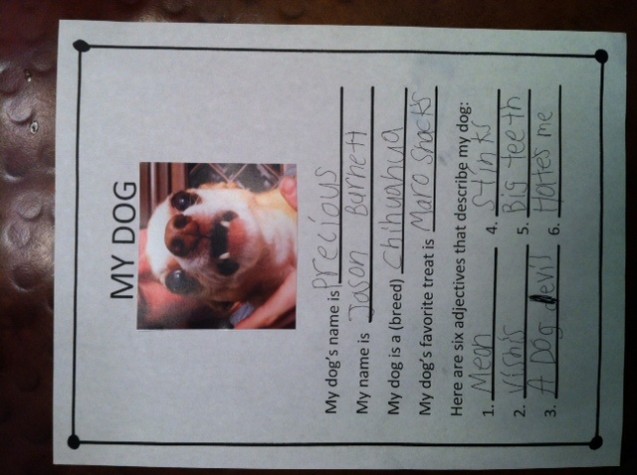 MY DOG
My dog's name is Precious
My name is Jason Burnett
My dog is a (breed) Chihuahua
My dog's favorite treat is Maro Snacks
Here are six adjectives that describe my dog:
1. Mean 4. Stinks
2. Vishis 5. Big teeth
3. A Dog devil 6. Hates me